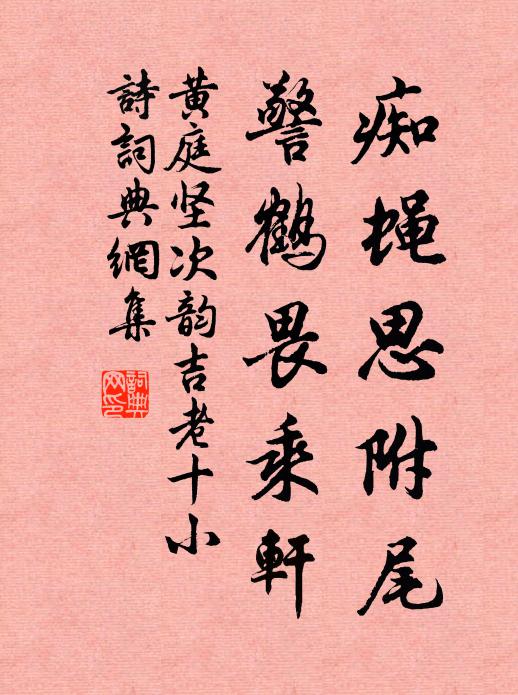 痴蝇思附尾
警鹤畏乘軒
黄庭坚次韵吉老十小
詩詞典網集
詞典
网印